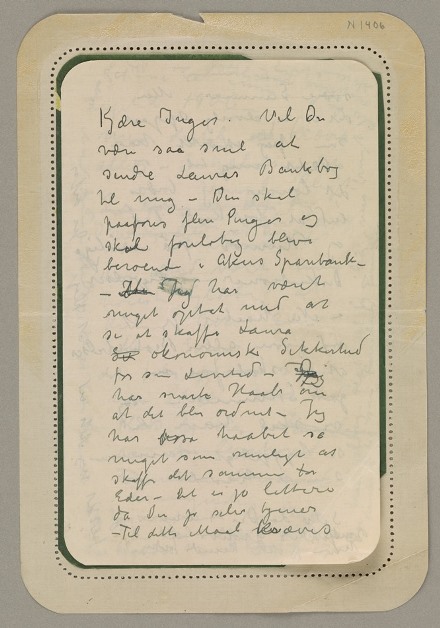 N 1406
Kjære Inger. Vil Du
være saa snil at
sende Lauras Bankbog
til mig – Den skal
paaføres flere Penge og
skal foreløbig blive
beroende i Akers Sparebank –
– Jeg har været
meget optat med at
se at skaffe Laura
økonomiske Sikkerhed
for sin Levetid –
har snart Haab om
at det blir ordnet – Jeg
har haabet so
meget som muligt at
skaffe det samme for
Eder – Det er jo lettere
da Du jo selv tjener
– Til dette Maal kræves